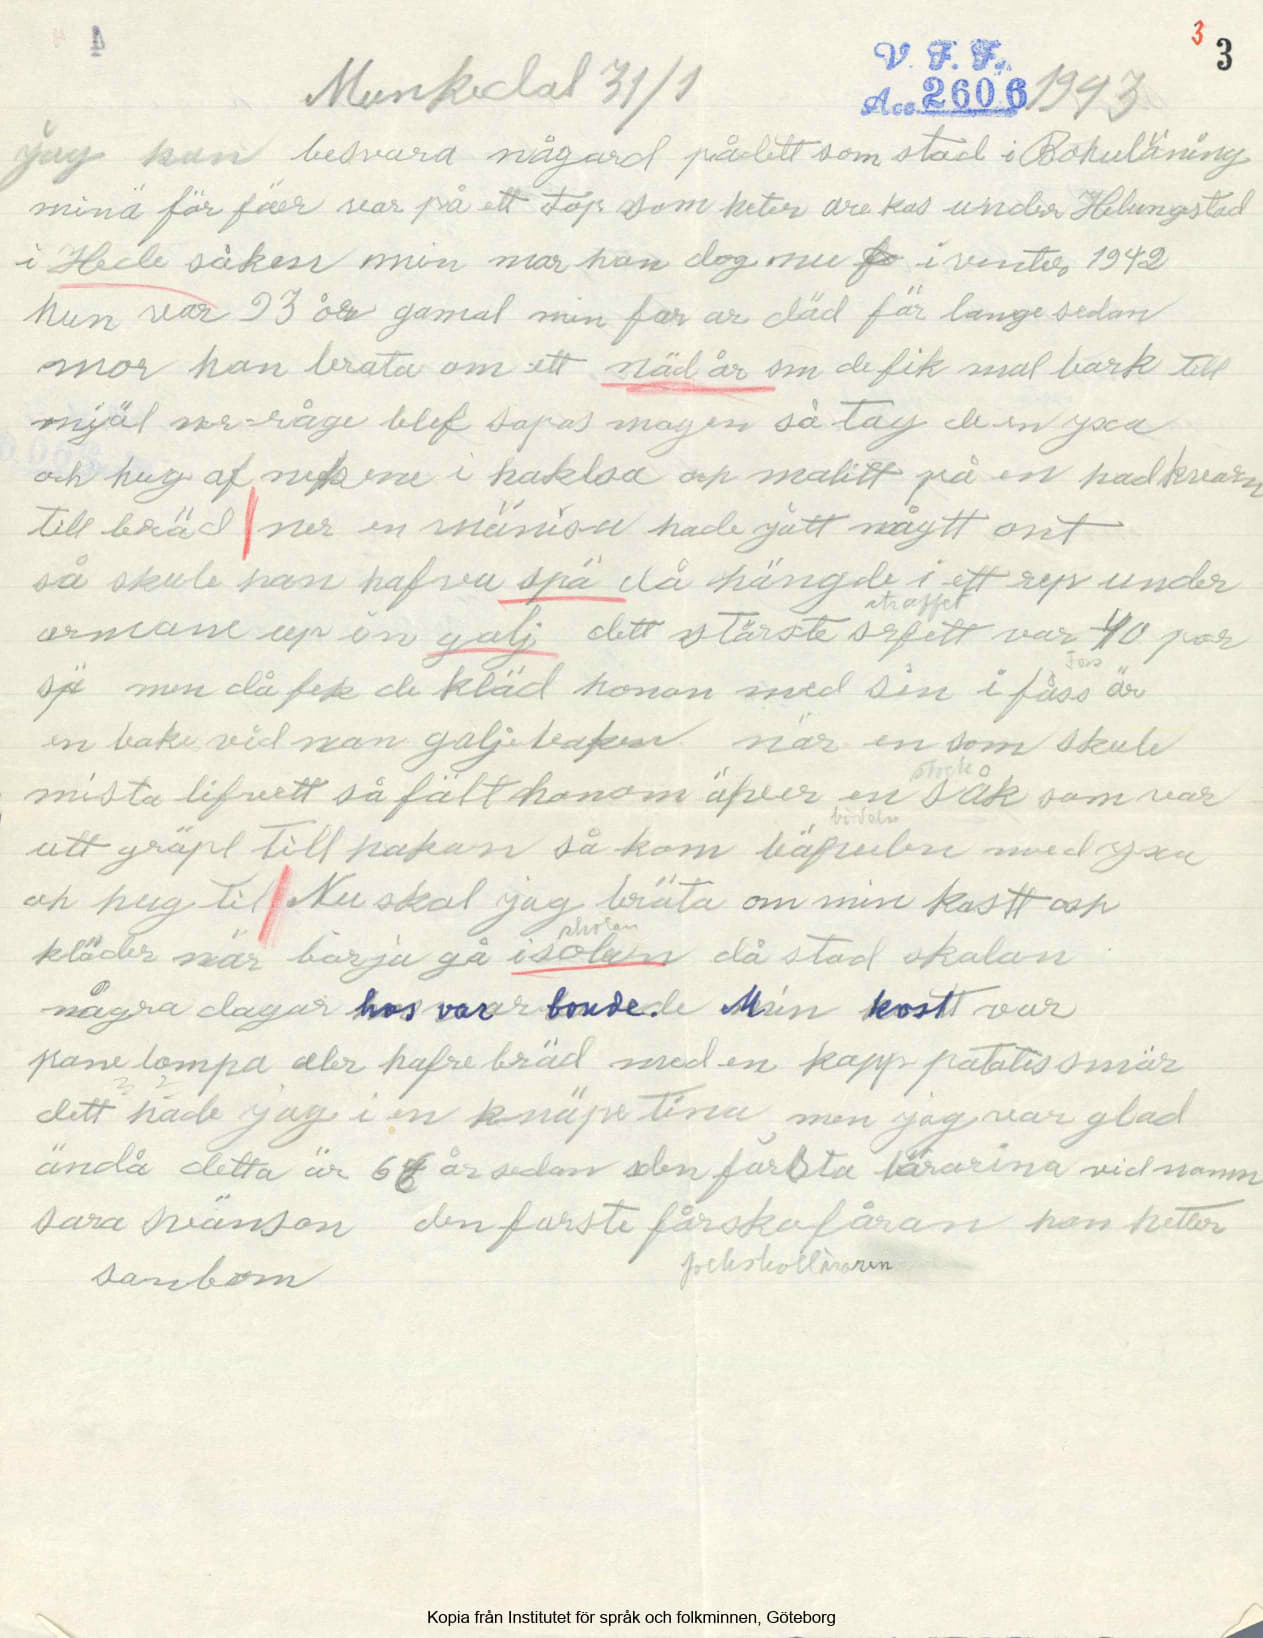 3 3
V. F. F.
Munkedal 31/1 Acc. 2606 1943
jag kan besvara någard på dett som stad i Bohuläning
minä för fäer var på ett top som heter are kas under Helungstad
i Hede såken min mar hon dog nu i venter 1942
hun var 93 år gamal min far ar däd fär lange sedan
mor han berata om ett näd år om de fik mal bark till
mjäl ner råge blef sapas mogen så tag de en yxa
och hug af i haklsa op malitt på en had kvarn
till bräd ner en mänisu hade jått någtt ont
så skule han hafva spä då hängde i ett rep under
armane up in galj dett stårste straffet var 40 par
spä men då fek de kläd honon med sin i fåss är
Foss
en bake vid nan galjebaken när en som skule
mista lifvett så fält honom äfver en såk som var
stock
utt gräpt till hakan så kom bäfuelen med yxa
bödeln
oh hug til Nu skal jag bräta om min kastt osp
kläder när börja gå i solan då stad skalan
skolan
några dagar hos var bonde. Min kost var
pane lompa eler hafre bräd med en kapp patatis smär
dett hade jag i en knäpe tina men jag var glad
ändå detta är 66 år sedan den farsta lärarina vid namn
sara svänson den furste fårskolåran han hetter
folkskolläraren
sanbom
Kopia från Institutet för språk och folkminnen, Göteborg